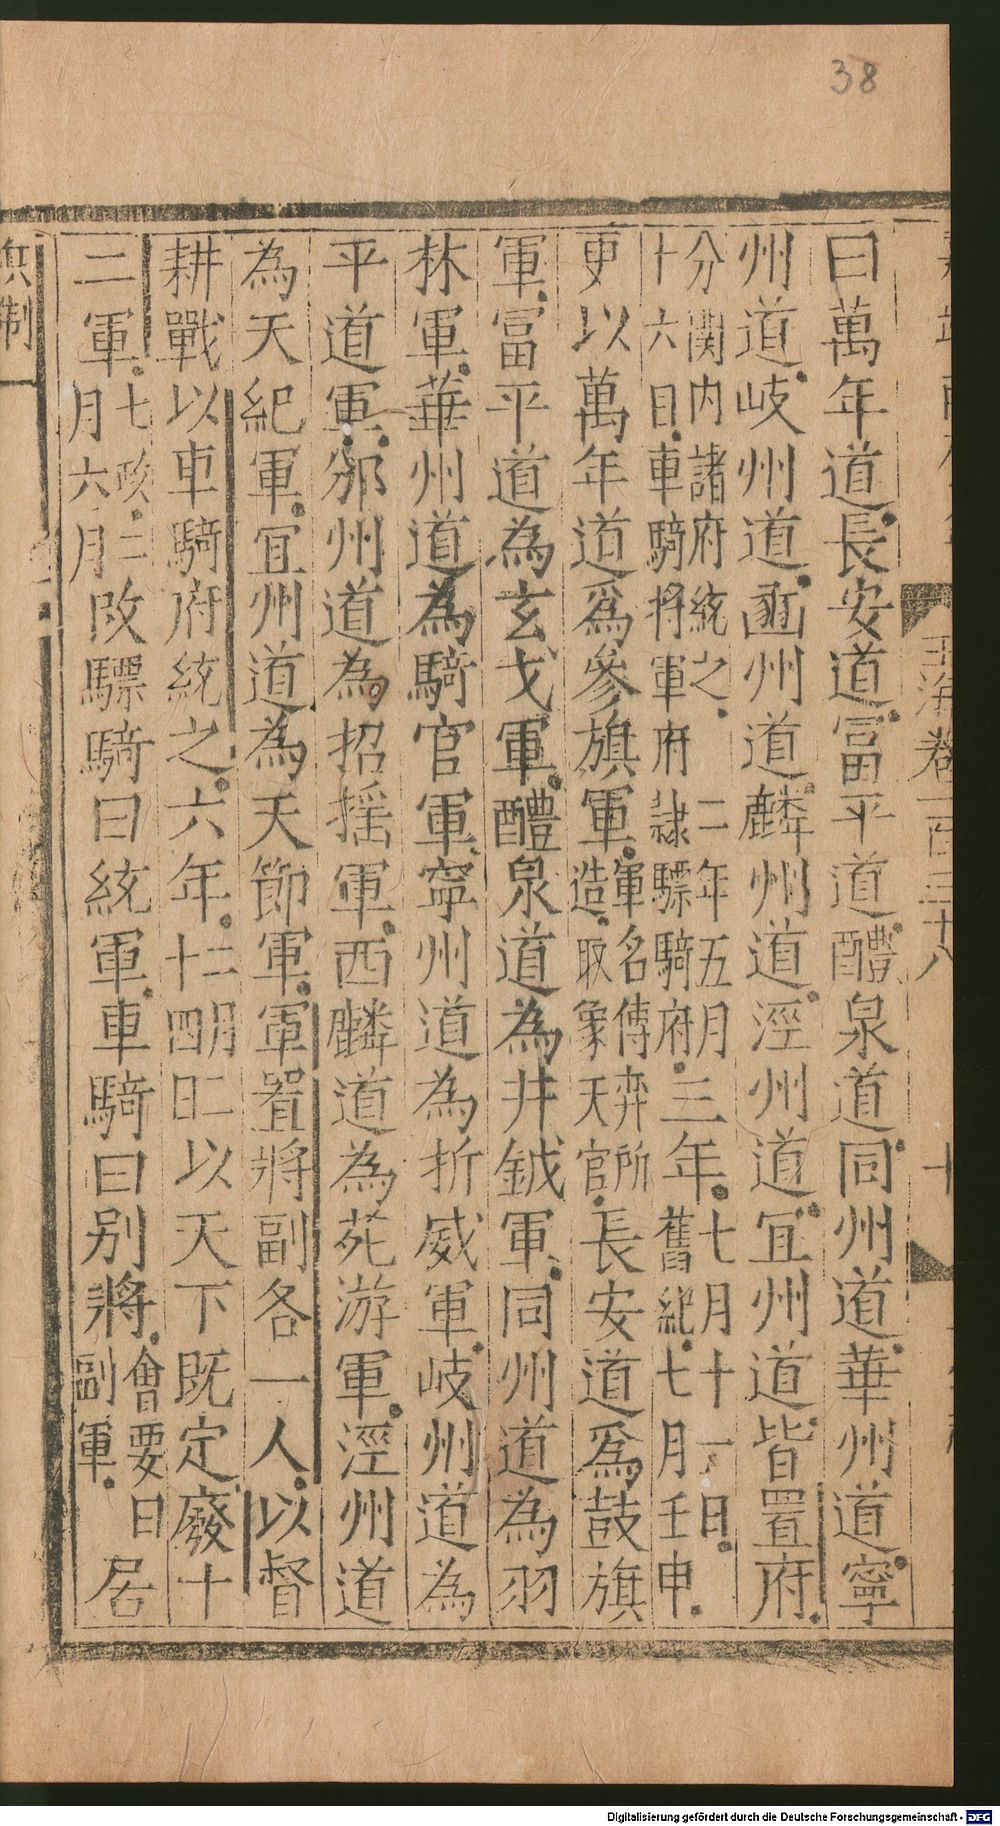 38
玉海卷一百三十八
十
曰萬年道長安道冨平道醴泉道同州道華州道寧
州道岐州道豳州道麟州道涇州道宜州道皆置府
分関内諸府統之二年五月
十六日車騎将軍府隷驃騎府三年七月十一日
舊紀七月壬申
更以萬年道爲參旗軍軍名傅弈所
造取象天官長安道爲鼓旗
軍冨平道為玄戈軍醴泉道為井鉞軍同州道為羽
林軍華州道為騎官軍寧州道為折威軍岐州道為
平道軍邠州道為招揺軍西麟道為苑游軍涇州道
為天紀軍宜州道為天節軍軍置將副各一人以督
耕戰以車騎府統之六年二月
十四明日二以天下既定廢十
二軍七政二
月六月改驃騎曰統軍車騎曰别將會要曰
副軍居
兵制
Digitalisierung gefördert durch die Deutsche Forschungsgemeinschaft - DFG